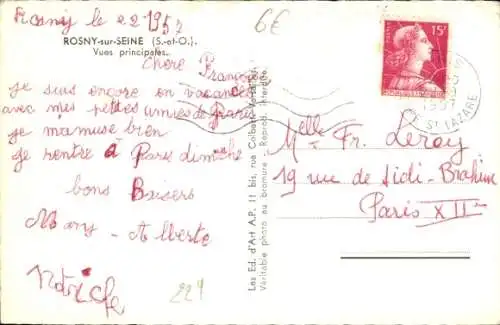 Rosny le 2 2 1957
6€
ROSNY-sur-SEINE (S.-et-O.).
Vues principales.
chère Françoi
je suis encore en vacances
avec mes petites amies de Paris
je m'amuse bien
je rentre à Paris dimche
bons Baisers
Many - Alberte
224
Les Ed. d'Art A.P. 11 bis, rue Colbert
Véritable photo au bromure - Reprod. interdite
15F
POSTES
St LAZARE
Melle Fr. Leroy
19 rue de Sidi-Brahim
Paris XII